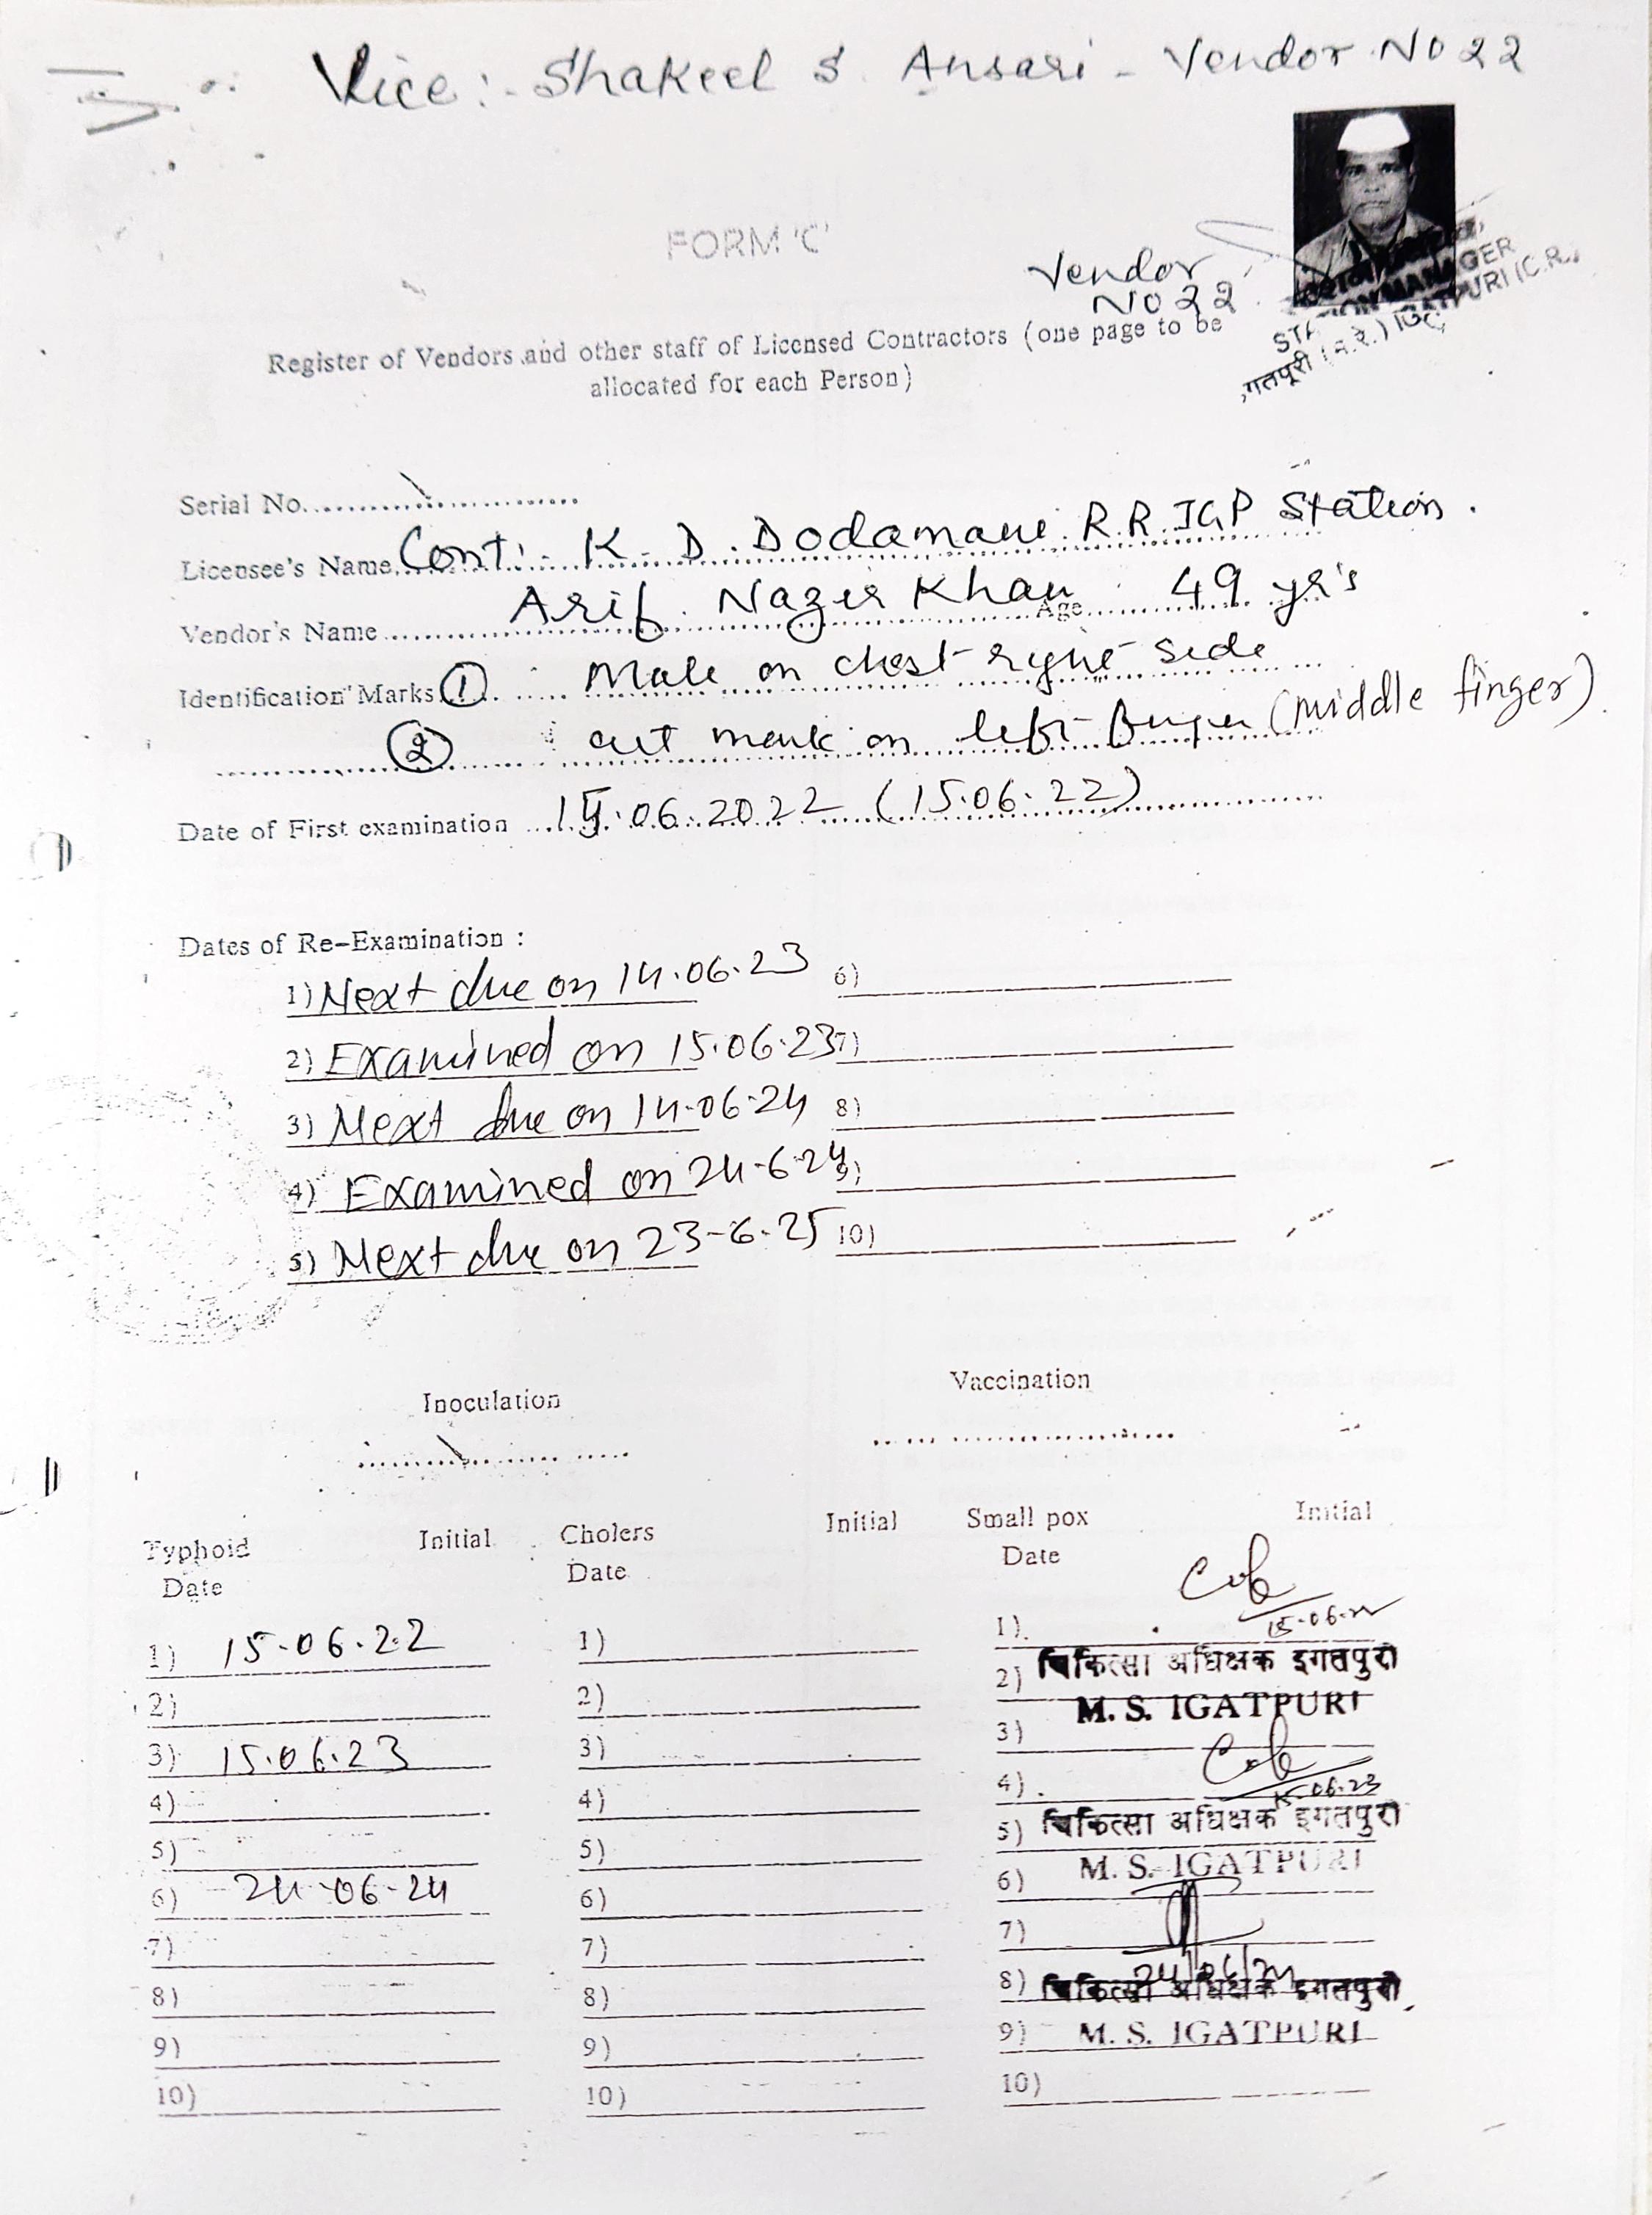 Vice:- Shakeel S. Ansari - Vendor No 22
FORM 'C'
Vendor
No 22
STATION MANAGER
IGATPURI (C.R.)
Register of Vendors and other staff of Licensed Contractors (one page to be
allocated for each Person)
Serial No.
Licensee's Name Cont:- K. D. Dodamani R.R. IGP Station.
Vendor's Name Arif Nazir Khan Age 49 yr's
Identification Marks ① Male on chest right side
② cut mark on left finger (middle finger)
Date of First examination 15.06.2022 (15.06.22)
Dates of Re-Examination :
1) Next due on 14.06.23 6)
2) Examined on 15.06.23 7)
3) Next due on 14.06.24 8)
4) Examined on 24-6-24 9)
5) Next due on 23-6-25 10)
Inoculation Vaccination
Typhoid Initial Cholers Initial Small pox Initial
Date Date Date
15.06.22
1) 15-06.22 1) 1)
2) 2) 2) चिकित्सा अधिक्षक इगतपुरी
M. S. IGATPURI
3) 15.06.23 3) 3)
4) 4) 4) 15.06.23
5) 5) 5) चिकित्सा अधिक्षक इगतपुरी
6) 24-06-24 6) 6) M. S. IGATPURI
7) 7) 7)
24/06/24
8) 8) 8) चिकित्सा अधिक्षक इगतपुरी
9) 9) 9) M. S. IGATPURI
10) 10) 10)